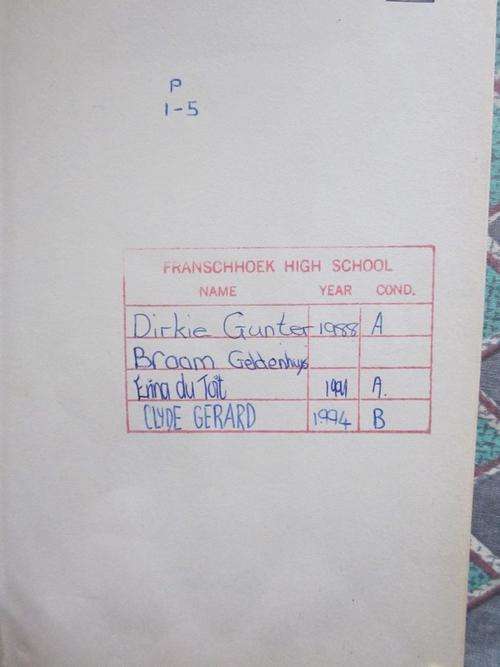 P
1-5
FRANSCHHOEK HIGH SCHOOL
NAME YEAR COND.
Dirkie Gunter 1988 A
Braam Geldenhys
Erina du Toit 1991 A.
CLYDE GERARD 1994 B